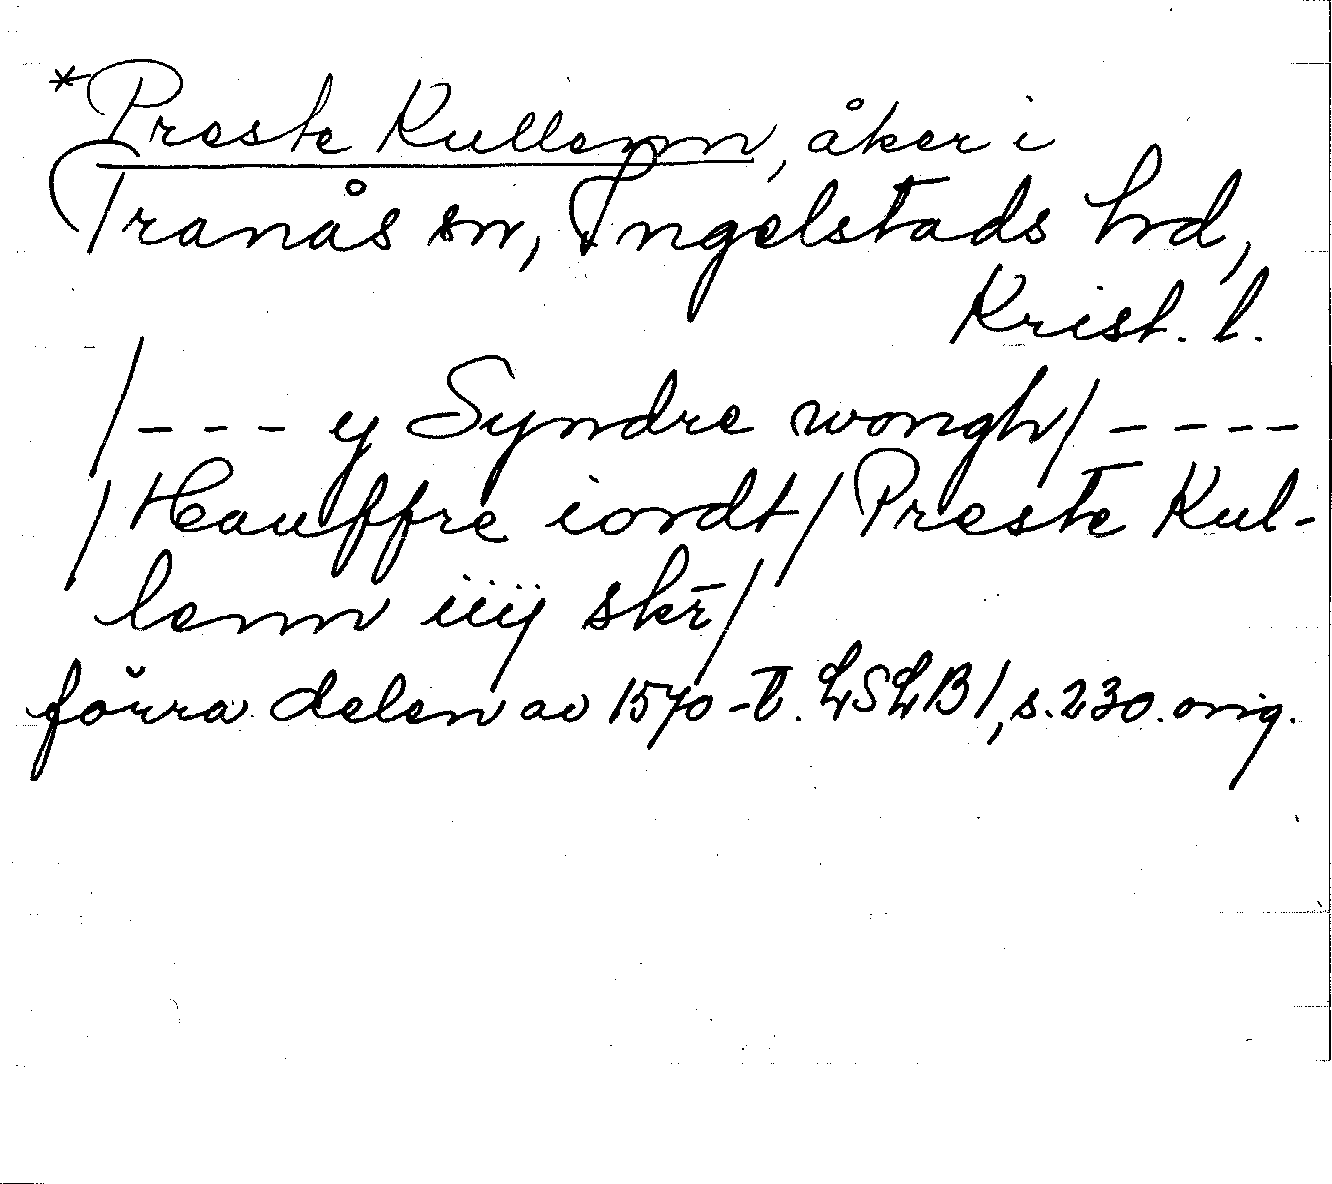 *Preste Kullenn, åker i
Tranås sn, Ingelstads hrd,
Krist. l.
/--- y Syndre wongh/----
/Hauffre iordt/Preste Kul-
lenn iiij skr̄/
förra delen av 1570-t. LSLB1, s.230. orig.